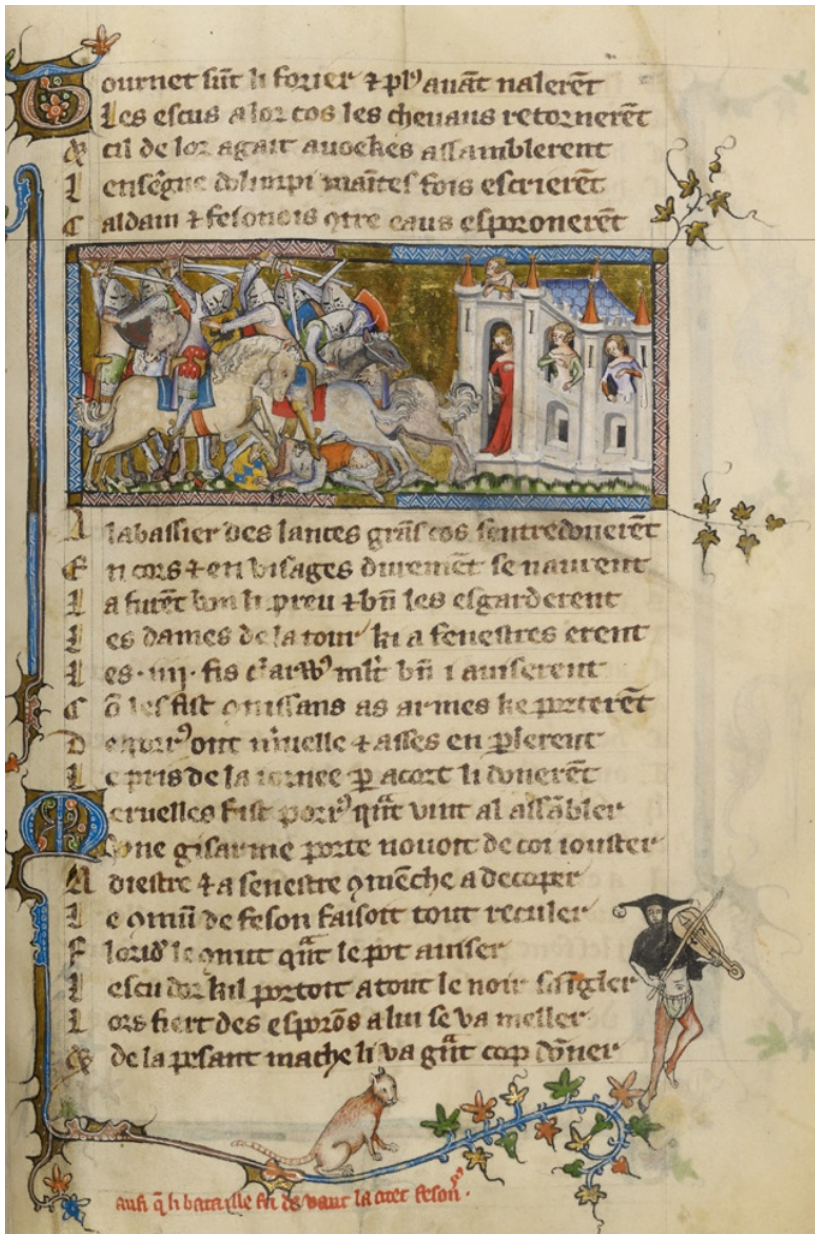 Tournet sūt li forier ⁊ plꝰ auāt nalerēt
Les escus a lor cos les cheuaus retornerēt
& cil de lor agait auoekes assamblerent
L enseigne dolimpi maītes fois escrierēt
C aldain ⁊ fesoneis ꝯtre eaus esporonerēt
A labaissier des lances grās cos sentredonerēt
E n cors ⁊ en visages duremēt se naurent
L a furēt bon li preu ⁊ bn̄ les esgarderent
L es dames de la tour ki a fenestres erent
L es · iiij · fis mlt bn̄ i auiserent
C ō les fist ꝯnissans as armes ke porterēt
D e porrꝰ ont nouuelle ⁊ asses en ꝑlerent
L e pris de la iornee ꝑ acort li donerēt
Meruelles fist porrꝰ qāt vint al assābler
Vne gisarme porte nouoit de coi iouster
A diestre ⁊ a senestre ꝯmēche a decoper
L e ꝯmū de feson faisoit tout reculer
F lorid' le ꝯnut qāt le pot auiser
L escu dor kil portoit a tout le noir sēgler
L ors fiert des esporōs a lui se va meller
& de la pesant mache li va grāt cop dōner
ausi q̄ li bataille fu deuant la citet feson